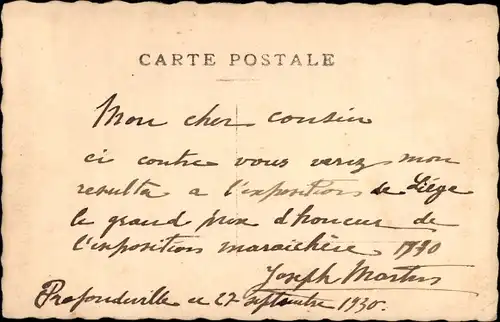 CARTE POSTALE
Mon cher cousin
ci contre vous verez mon
resulta a l'exposition de Liége
le grand prix d'honeur de
l'exposition maraichère 1930
Joseph Martin
Profondeville le 27 septembre 1930.